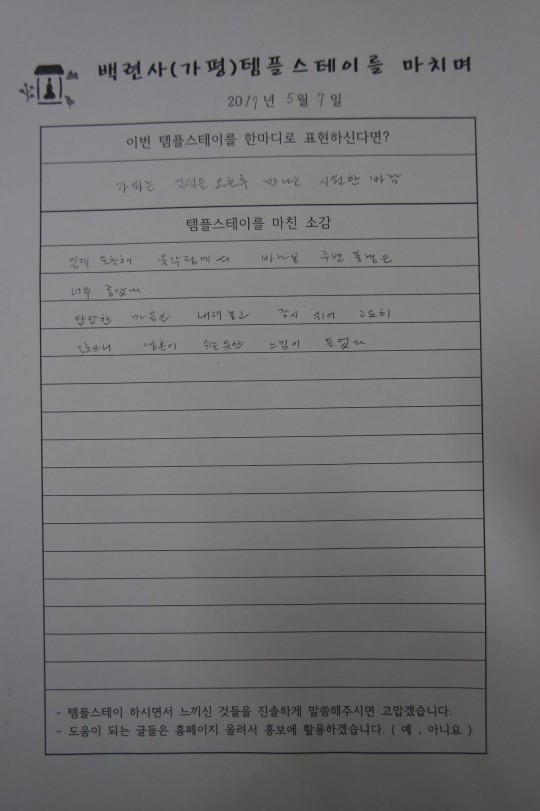 백련사(가평)템플스테이를 마치며
2017년 5월 7일
이번 템플스테이를 한마디로 표현하신다면?
오르는 오후 만나는 시원한 바람
템플스테이를 마친 소감
일찍 도착해 육각정에서 바라본 주변 풍경은
너무 좋았다.
답답한 마음은 내려놓고 잠시 쉬어 고요히
영혼이 쉬는듯한 느낌이 들었다.
- 템플스테이 하시면서 느끼신 것들을 진솔하게 말씀해주시면 고맙겠습니다.
- 도움이 되는 글들은 홈페이지 올려서 홍보에 활용하겠습니다. ( 예 , 아니요 )